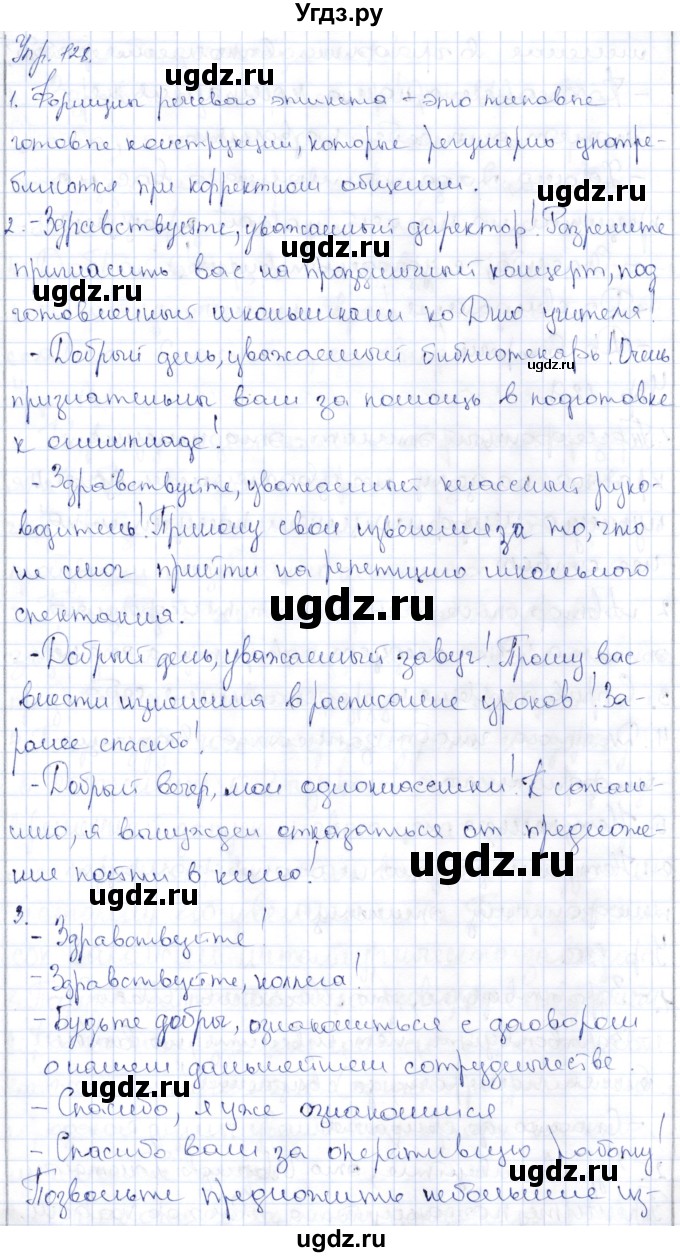 Угдз.ру
Упр. 128.
ugdz.ru
1. Формулы речевого этикета – это типовые
готовые конструкции, которые регулярно употре-
бляются при корректном общении.
ugdz.ru
2. – Здравствуйте, уважаемый директор! Разрешите
пригласить вас на праздничный концерт, под
ugdz.ru
готовленный школьниками ко Дню учителя!
– Добрый день, уважаемый библиотекарь! Очень
ugdz.ru
признательны вам за помощь в подготовке
к олимпиаде!
– Здравствуйте, уважаемый классный руко-
водитель! Приношу свои извенения за то, что
не смог прийти на репетицию школьного
ugdz.ru
спектакля.
– Добрый день, уважаемый завуч! Прошу вас
внести изменения в расписание уроков! За-
ранее спасибо!
– Добрый вечер, мои одноклассники! К сожале-
нию, я вынужден отказаться от предложе-
ugdz.ru
ние пойти в кино!
ugdz.ru
3.
– Здравствуйте!
ugdz.ru
– Здравствуйте, коллега!
– Будьте добры, ознакомиться с договором
о нашем дальнейшем сотрудничестве.
ugdz.ru
– Спасибо, я уже ознакомился
ugdz.ru
– Спасибо вам за оперативную работу!
Позвольте предложить небольшие из-
ugdz.ru
ugdz.ru